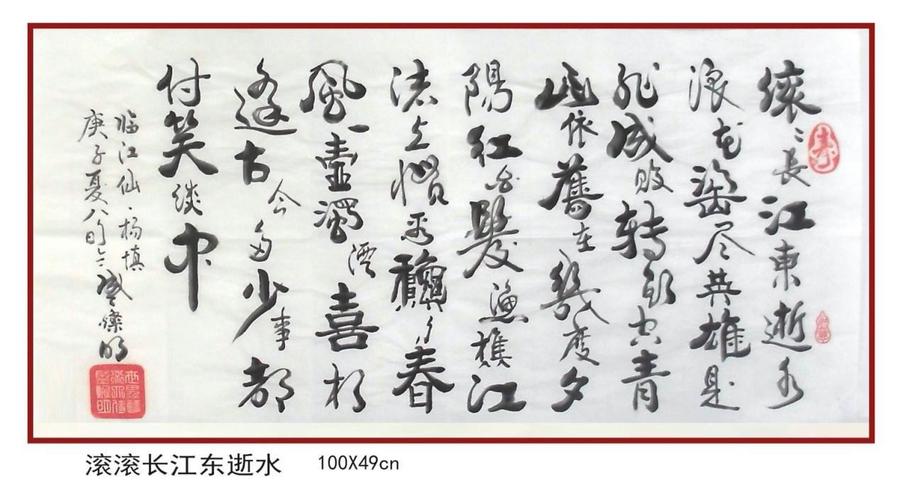 滚〻長江東逝水
浪花淘尽英雄是
非成敗轉头空青
山依舊在幾度夕
陽红白髮渔樵江
渚上惯看龝月春
風一壺濁酒喜相
逢古今多少事都
付笑谈中
临江仙·杨慎
庚子夏八旬 燦明
滚滚长江东逝水 100X49cn